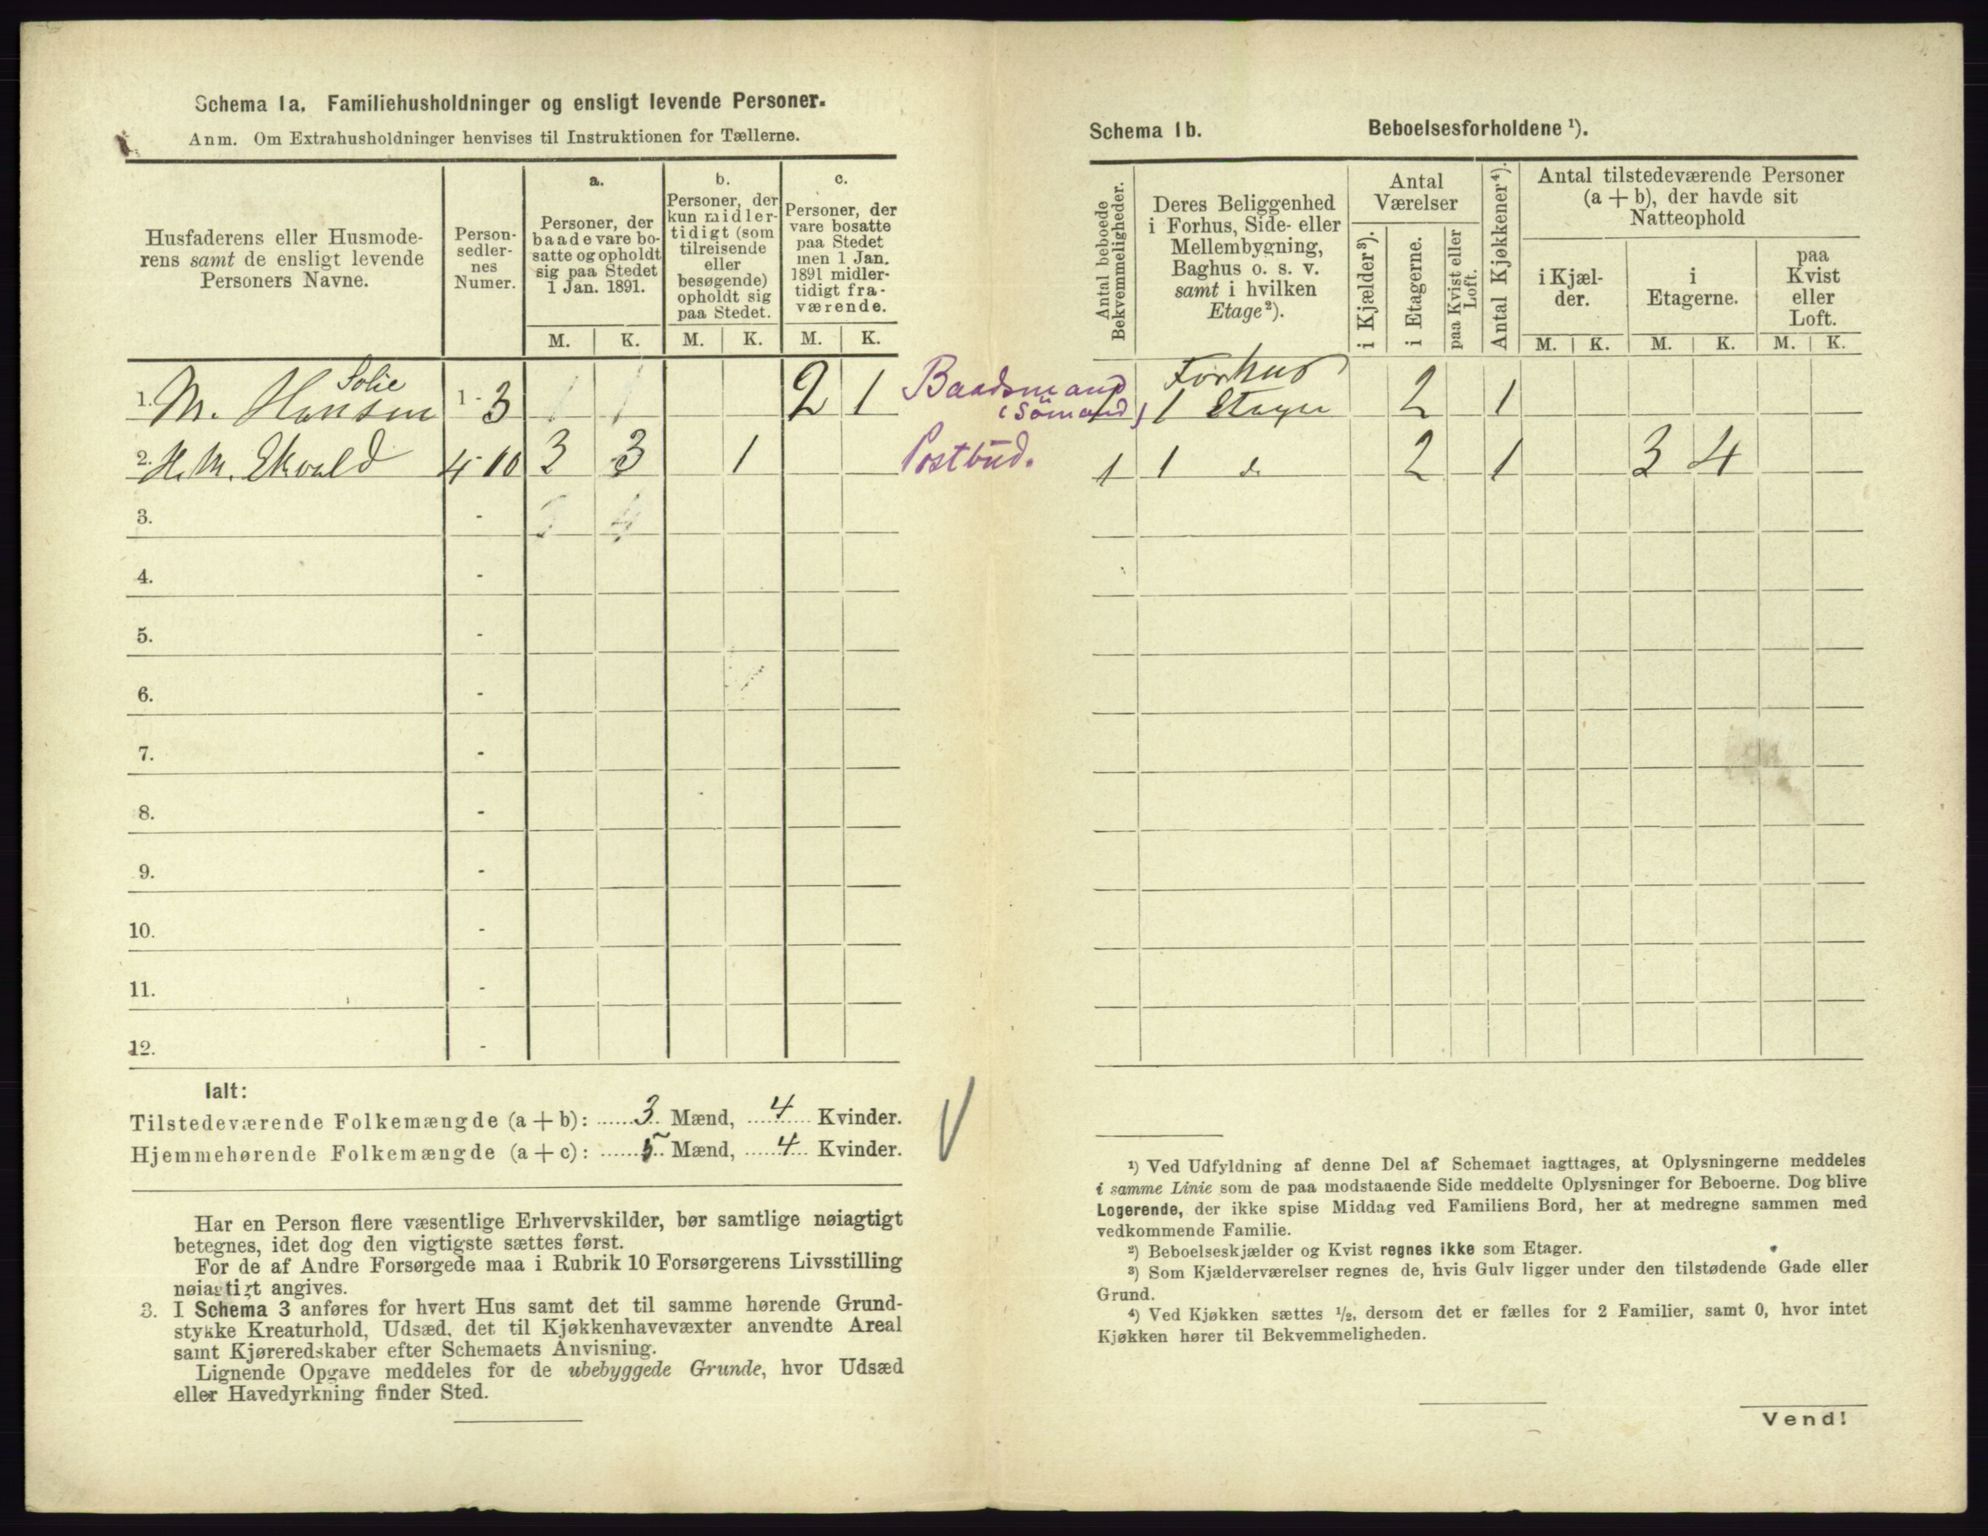 Schema 1a. Familiehusholdninger og ensligt levende Personer.
Anm. Om Extrahusholdninger henvises til Instruktionen for Tællerne.
Husfaderens eller Husmode-
rens samt de ensligt levende
Personers Navne.
Person-
sedler-
nes
Numer.
a.
Personer, der
baade vare bo-
satte og opholdt
sig paa Stedet
1 Jan. 1891.
b.
Personer, der
kun midler-
tidigt (som
tilreisende
eller
besøgende)
opholdt sig
paa Stedet.
c.
Personer, der
vare bosatte
paa Stedet
men 1 Jan.
1891 midler-
tidigt fra-
værende.
M. K. M. K. M. K.
Solie
1. M. Hansen 1 - 3 1 1 2 1 Baadsmand
(Sömand)
2. H. M. Ekvald 4-10 3 3 1 Postbud.
3. - 3 4
4. -
5. -
6. -
7. -
8. -
9. -
10. -
11. -
12. -
Ialt:
Tilstedeværende Folkemængde (a + b): 3 Mænd, 4 Kvinder.
Hjemmehørende Folkemængde (a + c): 5 Mænd, 4 Kvinder.
Har en Person flere væsentlige Erhvervskilder, bør samtlige nøiagtigt
betegnes, idet dog den vigtigste sættes først.
For de af Andre Forsørgede maa i Rubrik 10 Forsørgerens Livsstilling
nøiagtigt angives.
3. I Schema 3 anføres for hvert Hus samt det til samme hørende Grund-
stykke Kreaturhold, Udsæd, det til Kjøkkenhavevæxter anvendte Areal
samt Kjøreredskaber efter Schemaets Anvisning.
Lignende Opgave meddeles for de ubebyggede Grunde, hvor Udsæd
eller Havedyrkning finder Sted.
Schema 1b. Beboelsesforholdene ¹).
Antal beboede
Bekvemmeligheder.
Deres Beliggenhed
i Forhus, Side- eller
Mellembygning,
Baghus o. s. v.
samt i hvilken
Etage²).
Antal
Værelser
i Kjælder³).
i Etagerne.
paa Kvist eller
Loft.
Antal Kjøkkener⁴).
Antal tilstedeværende Personer
(a + b), der havde sit
Natteophold
i Kjæl-
der.
i
Etagerne.
paa
Kvist
eller
Loft.
M. K. M. K. M. K.
Forhus
1 1 Etager 2 1
1 1 d. 2 1 3 4
¹) Ved Udfyldning af denne Del af Schemaet iagttages, at Oplysningerne meddeles
i samme Linie som de paa modstaaende Side meddelte Oplysninger for Beboerne. Dog blive
Logerende, der ikke spise Middag ved Familiens Bord, her at medregne sammen med
vedkommende Familie.
²) Beboelseskjælder og Kvist regnes ikke som Etager.
³) Som Kjælderværelser regnes de, hvis Gulv ligger under den tilstødende Gade eller
Grund.
⁴) Ved Kjøkken sættes ½, dersom det er fælles for 2 Familier, samt 0, hvor intet
Kjøkken hører til Bekvemmeligheden.
Vend!